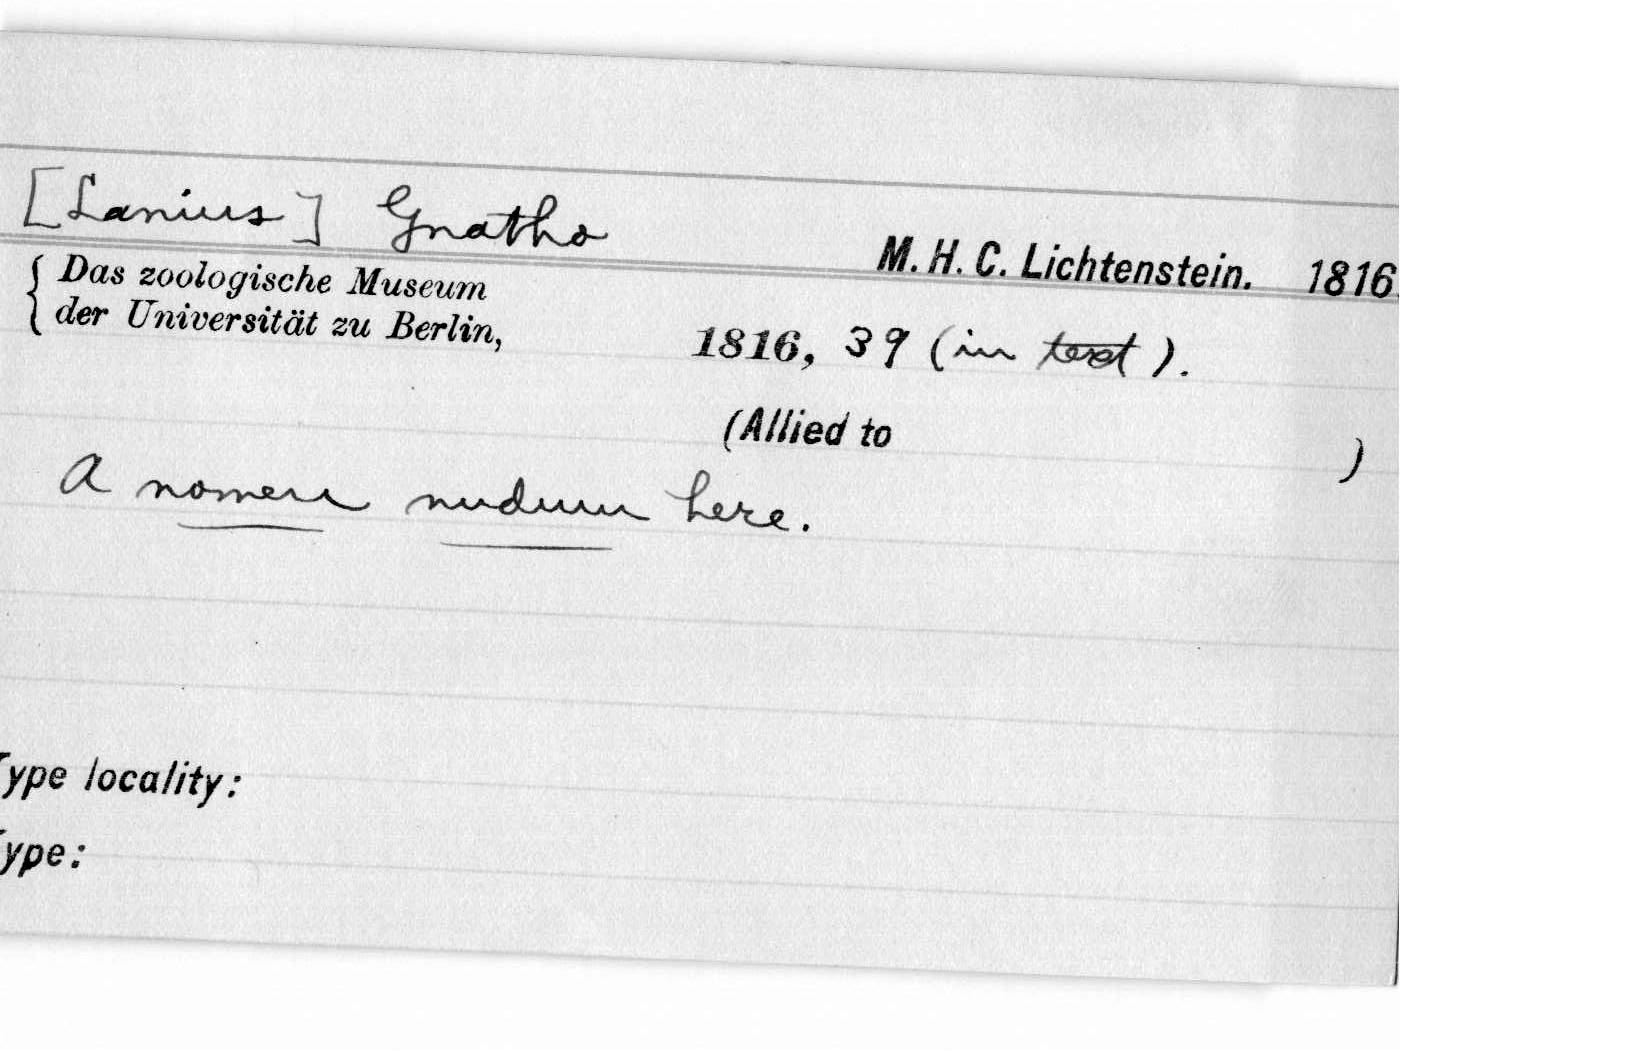 [Lanius] Gnatho
M. H. C. Lichtenstein. 1816.
{ Das zoologische Museum
der Universität zu Berlin,
1816, 39 (in text).
(Allied to )
A nomen nudum here.
Type locality:
Type: